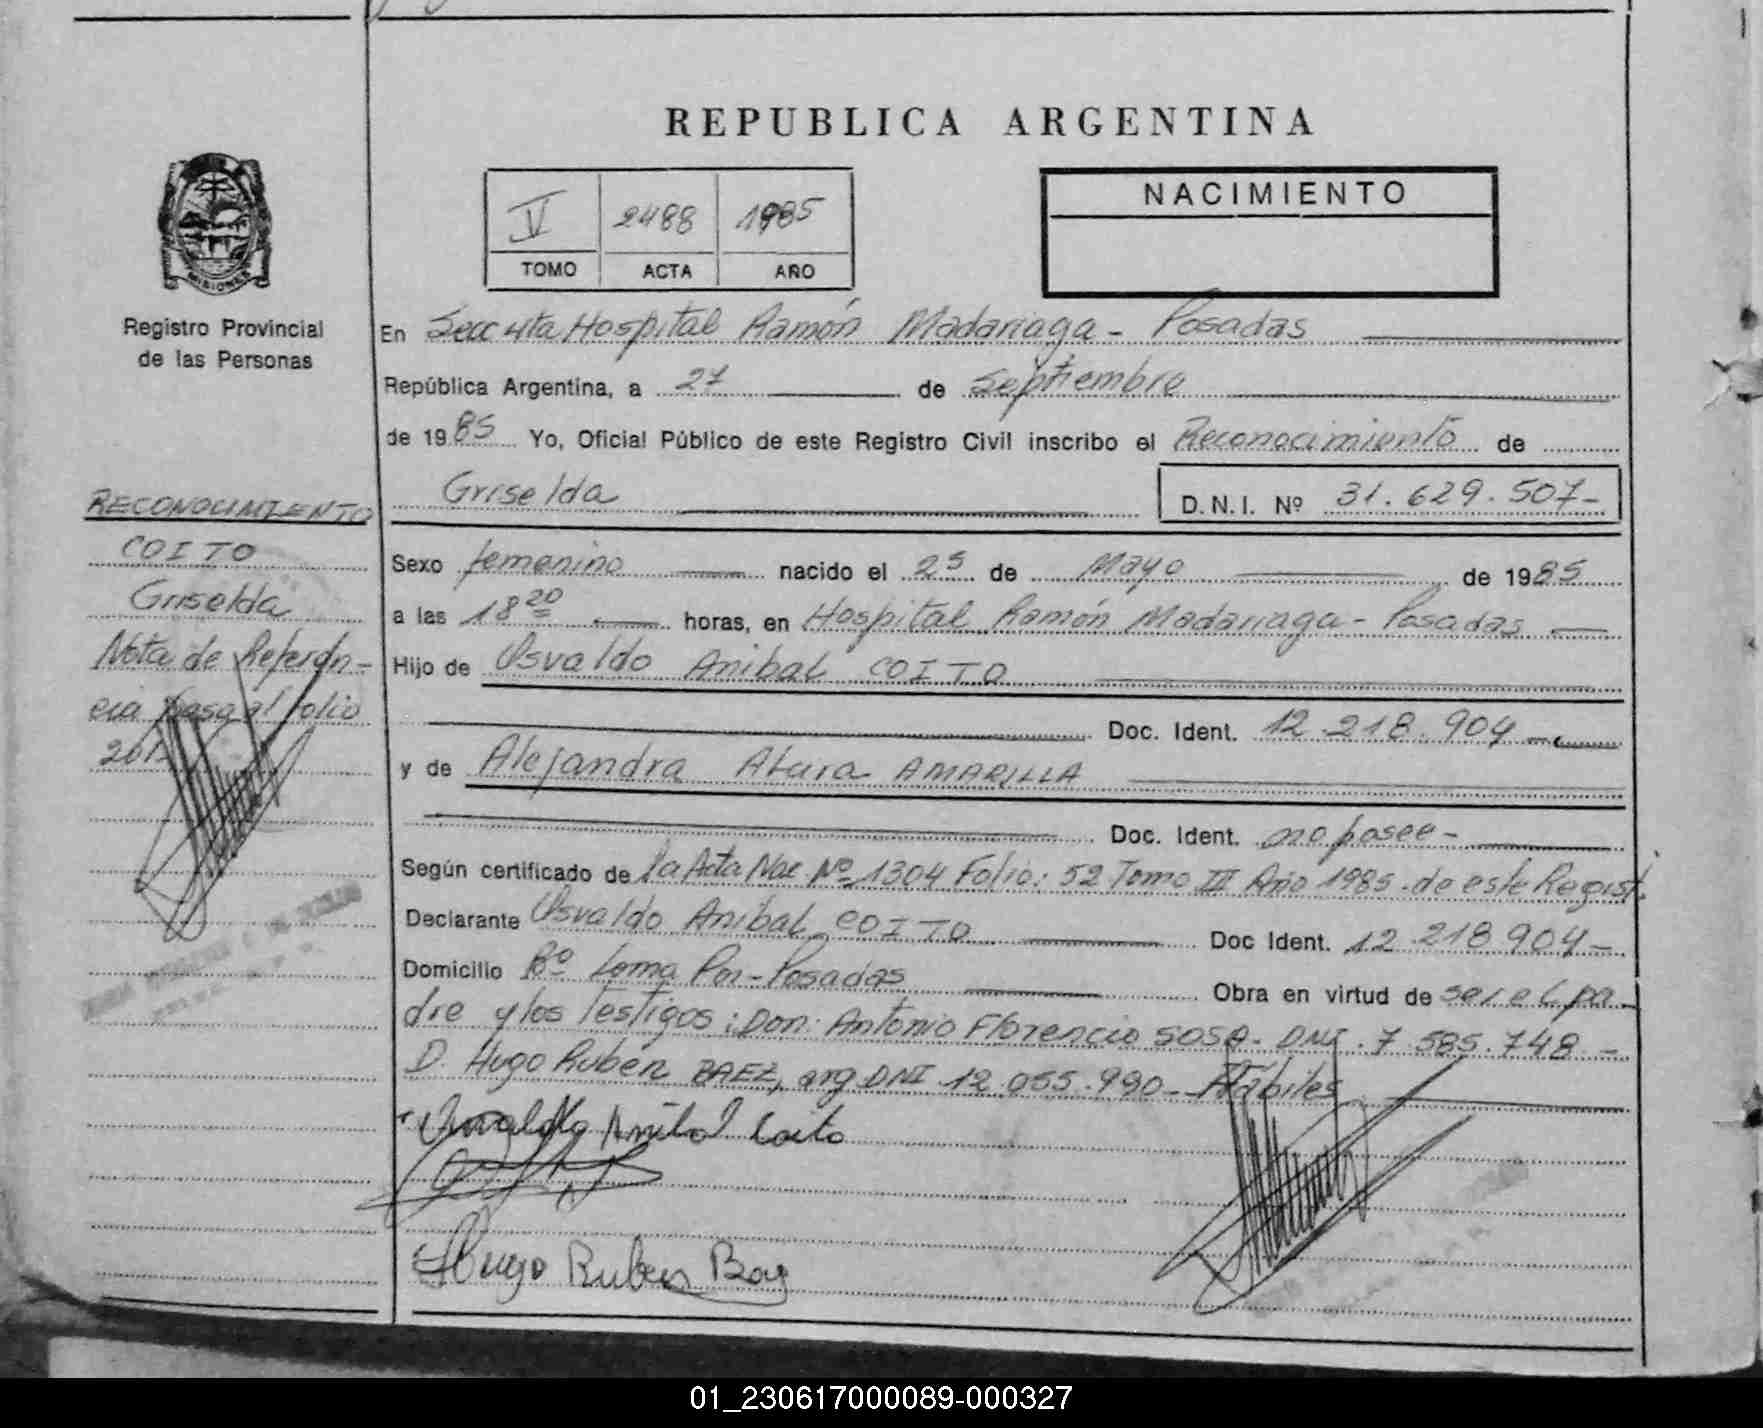 REPUBLICA ARGENTINA
MISIONES
Registro Provincial
de las Personas
V 2488 1985
TOMO ACTA AÑO
NACIMIENTO
En Secc 4ta Hospital Ramón Madariaga - Posadas
República Argentina, a 27 de Septiembre
de 1985 Yo, Oficial Público de este Registro Civil inscribo el Reconocimiento de
Griselda D.N.I. Nº 31.629.507-
RECONOCIMIENTO
COITO
Griselda
Nota de Referen-
cia pasa al folio
201
Sexo femenino nacido el 25 de Mayo de 1985
a las 18 20 horas, en Hospital Ramón Madariaga - Posadas
Hijo de Osvaldo Anibal COITO
Doc. Ident. 12.218.904
y de Alejandra AMARILLA
Doc. Ident. no posee-
Según certificado de la Acta Nac Nº 1304 Folio: 52 Tomo III Año 1985 de este Regist.
Declarante Osvaldo Anibal COITO Doc Ident. 12 218 904-
Domicilio Bº Loma Por - Posadas Obra en virtud de ser el pa
dre y los Testigos: Don: Antonio Florencio SOSA - DNI. 7.585.748 -
D. Hugo Rubén BAEZ, arg DNI 12.055.990 - Hábiles
Osvaldo Anibal Coito
Hugo Ruben Baez
01_230617000089-000327